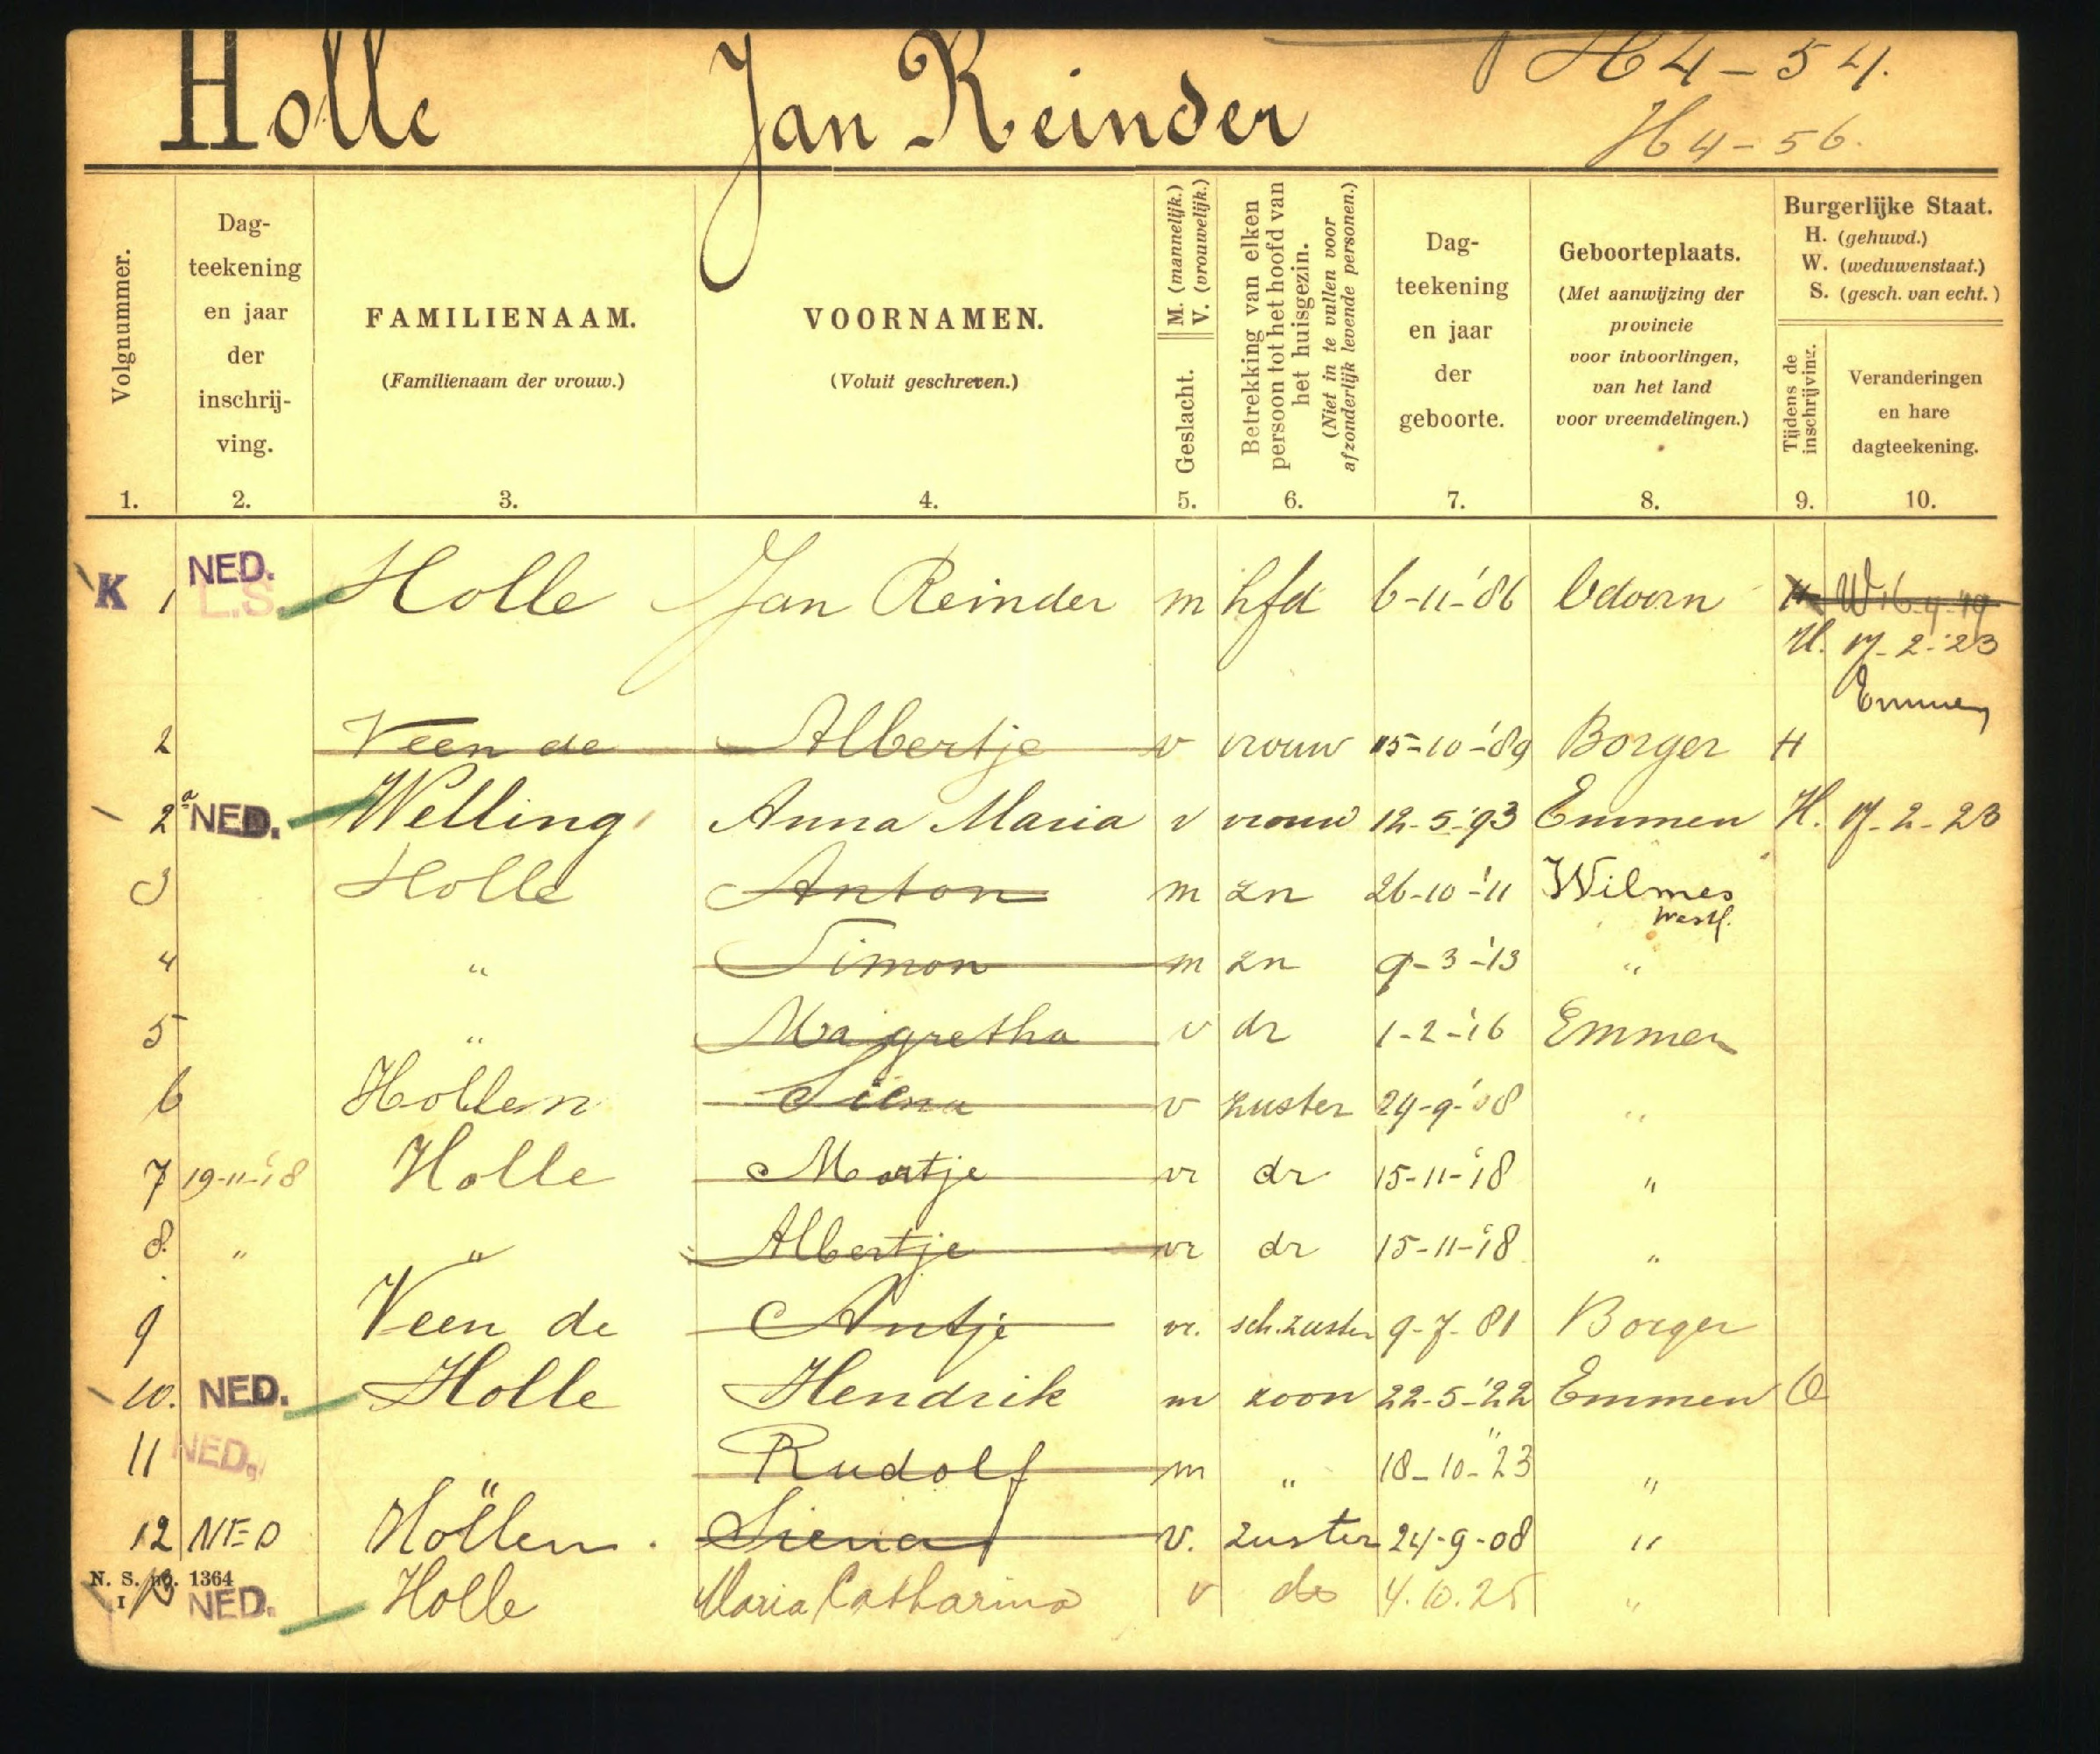 Holle Jan Reinder H4-54.
H4-56.
Volgnummer. Dag-teekening en jaar der inschrij-ving. FAMILIENAAM. (Familienaam der vrouw.) VOORNAMEN. (Voluit geschreven.) Geslacht. M. (mannelijk.) V. (vrouwelijk.) Betrekking van elken persoon tot het hoofd van het huisgezin. (Niet in te vullen voor afzonderlijk levende personen.) Dag-teekening en jaar der geboorte. Geboorteplaats. (Met aanwijzing der provincie voor inboorlingen, van het land voor vreemdelingen.) Burgerlijke Staat. H. (gehuwd.) W. (weduwenstaat.) S. (gesch. van echt.) Tijdens de inschrijving. Veranderingen en hare dagteekening.
1. 2. 3. 4. 5. 6. 7. 8. 9. 10.
K 1 NED. L.S. Holle Jan Reinder m hfd 6-11-'86 Odoorn H W 16-4-'19
H. 17-2-'23
Emmen
2 Veen de Albertje v vrouw 15-10-'89 Borger H
2a NED. Welling Anna Maria v vrouw 12-5-'93 Emmen H. 17-2-23
3 Holle Anton m zn 26-10-'11 Wilmes
Westf.
4 " Simon m zn 9-3-'13 "
5 " Margretha v dr 1-2-'16 Emmen
6 Hollen Siena v zuster 24-9-'08 "
7 19-11-'18 Holle Martje vr dr 15-11-'18 "
8. " " Albertje vr dr 15-11-'18 "
9 Veen de Antje vr. sch.zuster 9-7-81 Borger
10. NED. Holle Hendrik m zoon 22-5-'22 Emmen O
11 NED. Rudolf m " 18-10-'23 "
12 NED Höllen. Siena v. zuster 24-9-08 "
N. S. no. 1364
13 NED. Holle Maria Catharina v do 4.10.25 "